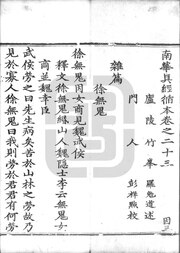 南華真經循本卷之二十三
廬陵竹峯 羅勉道述
門人 彭祥點校
雜篇
徐無鬼
徐無鬼因女商見魏武侯
釋文徐無鬼緡山人魏隱士李云無鬼女
商並魏幸臣
武侯勞之曰先生病矣苦於山林之勞故乃
肯見於寡人徐無鬼曰我則勞於君君有何勞